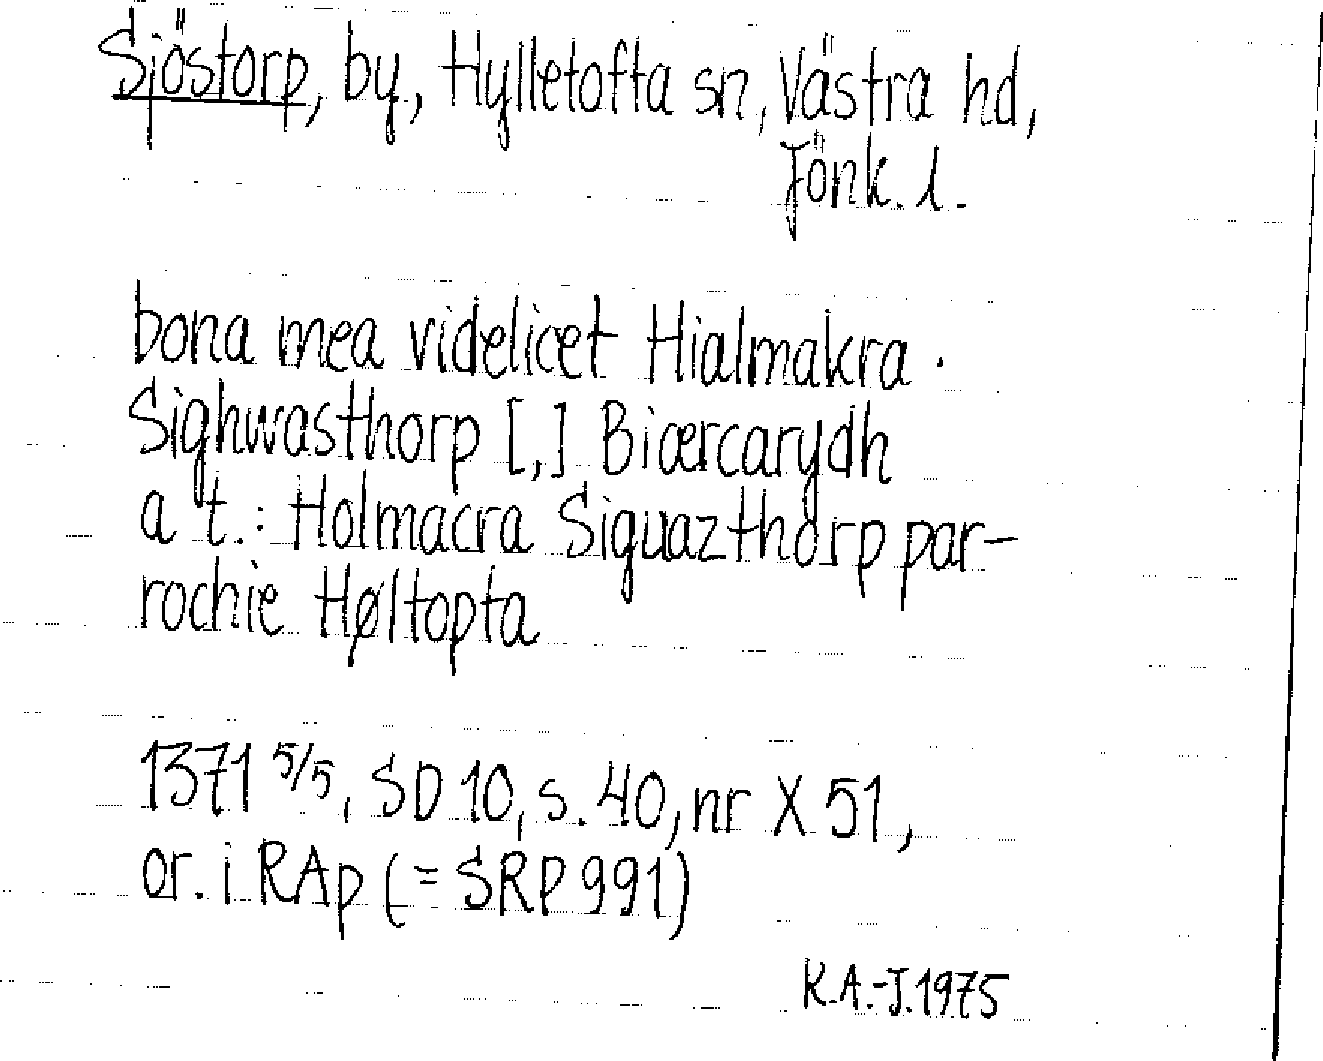 Sjöstorp, by, Hylletofta sn, Västra hd,
Jönk. l.
bona mea videlicet Hialmakra ·
Sighwasthorp [,] Biærcarydh
a t.: Holmacra Siguazthorp par-
rochie Høltopta
1371 5/5, SD 10, s. 40, nr X 51,
or. i RAp (= SRP 991)
K.A.-J. 1975